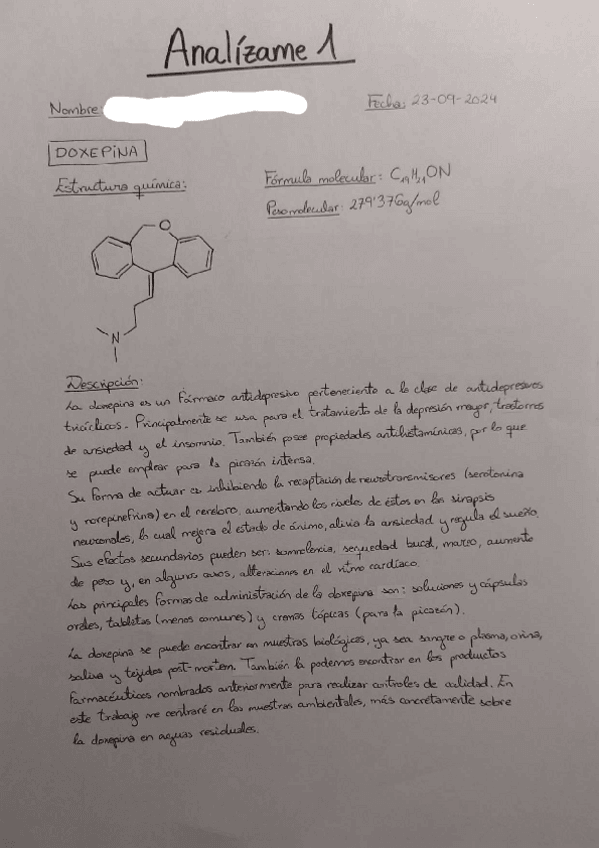 Analízame 1
Nombre:
Fecha: 23-09-2024
DOXEPINA
Estructura química:
Fórmula molecular: C₁₉H₂₁ON
Peso molecular: 279'376g/mol
O
N
Descripción:
La doxepina es un fármaco antidepresivo perteneciente a la clase de antidepresivos
tricíclicos. Principalmente se usa para el tratamiento de la depresión mayor, trastornos
de ansiedad y el insomnio. También posee propiedades antihistamínicas, por lo que
se puede emplear para la picazón intensa.
Su forma de actuar es inhibiendo la recaptación de neurotransmisores (serotonina
y norepinefrina) en el cerebro, aumentando los niveles de éstos en las sinapsis
neuronales, lo cual mejora el estado de ánimo, alivia la ansiedad y regula el sueño.
Sus efectos secundarios pueden ser: somnolencia, sequedad bucal, mareo, aumento
de peso y, en algunos casos, alteraciones en el ritmo cardíaco.
Las principales formas de administración de la doxepina son: soluciones y cápsulas
orales, tabletas (menos comunes) y cremas tópicas (para la picazón).
La doxepina se puede encontrar en muestras biológicas, ya sea sangre o plasma, orina,
saliva y tejidos post-mortem. También la podemos encontrar en los productos
farmacéuticos nombrados anteriormente para realizar controles de calidad. En
este trabajo me centraré en las muestras ambientales, más concretamente sobre
la doxepina en aguas residuales.